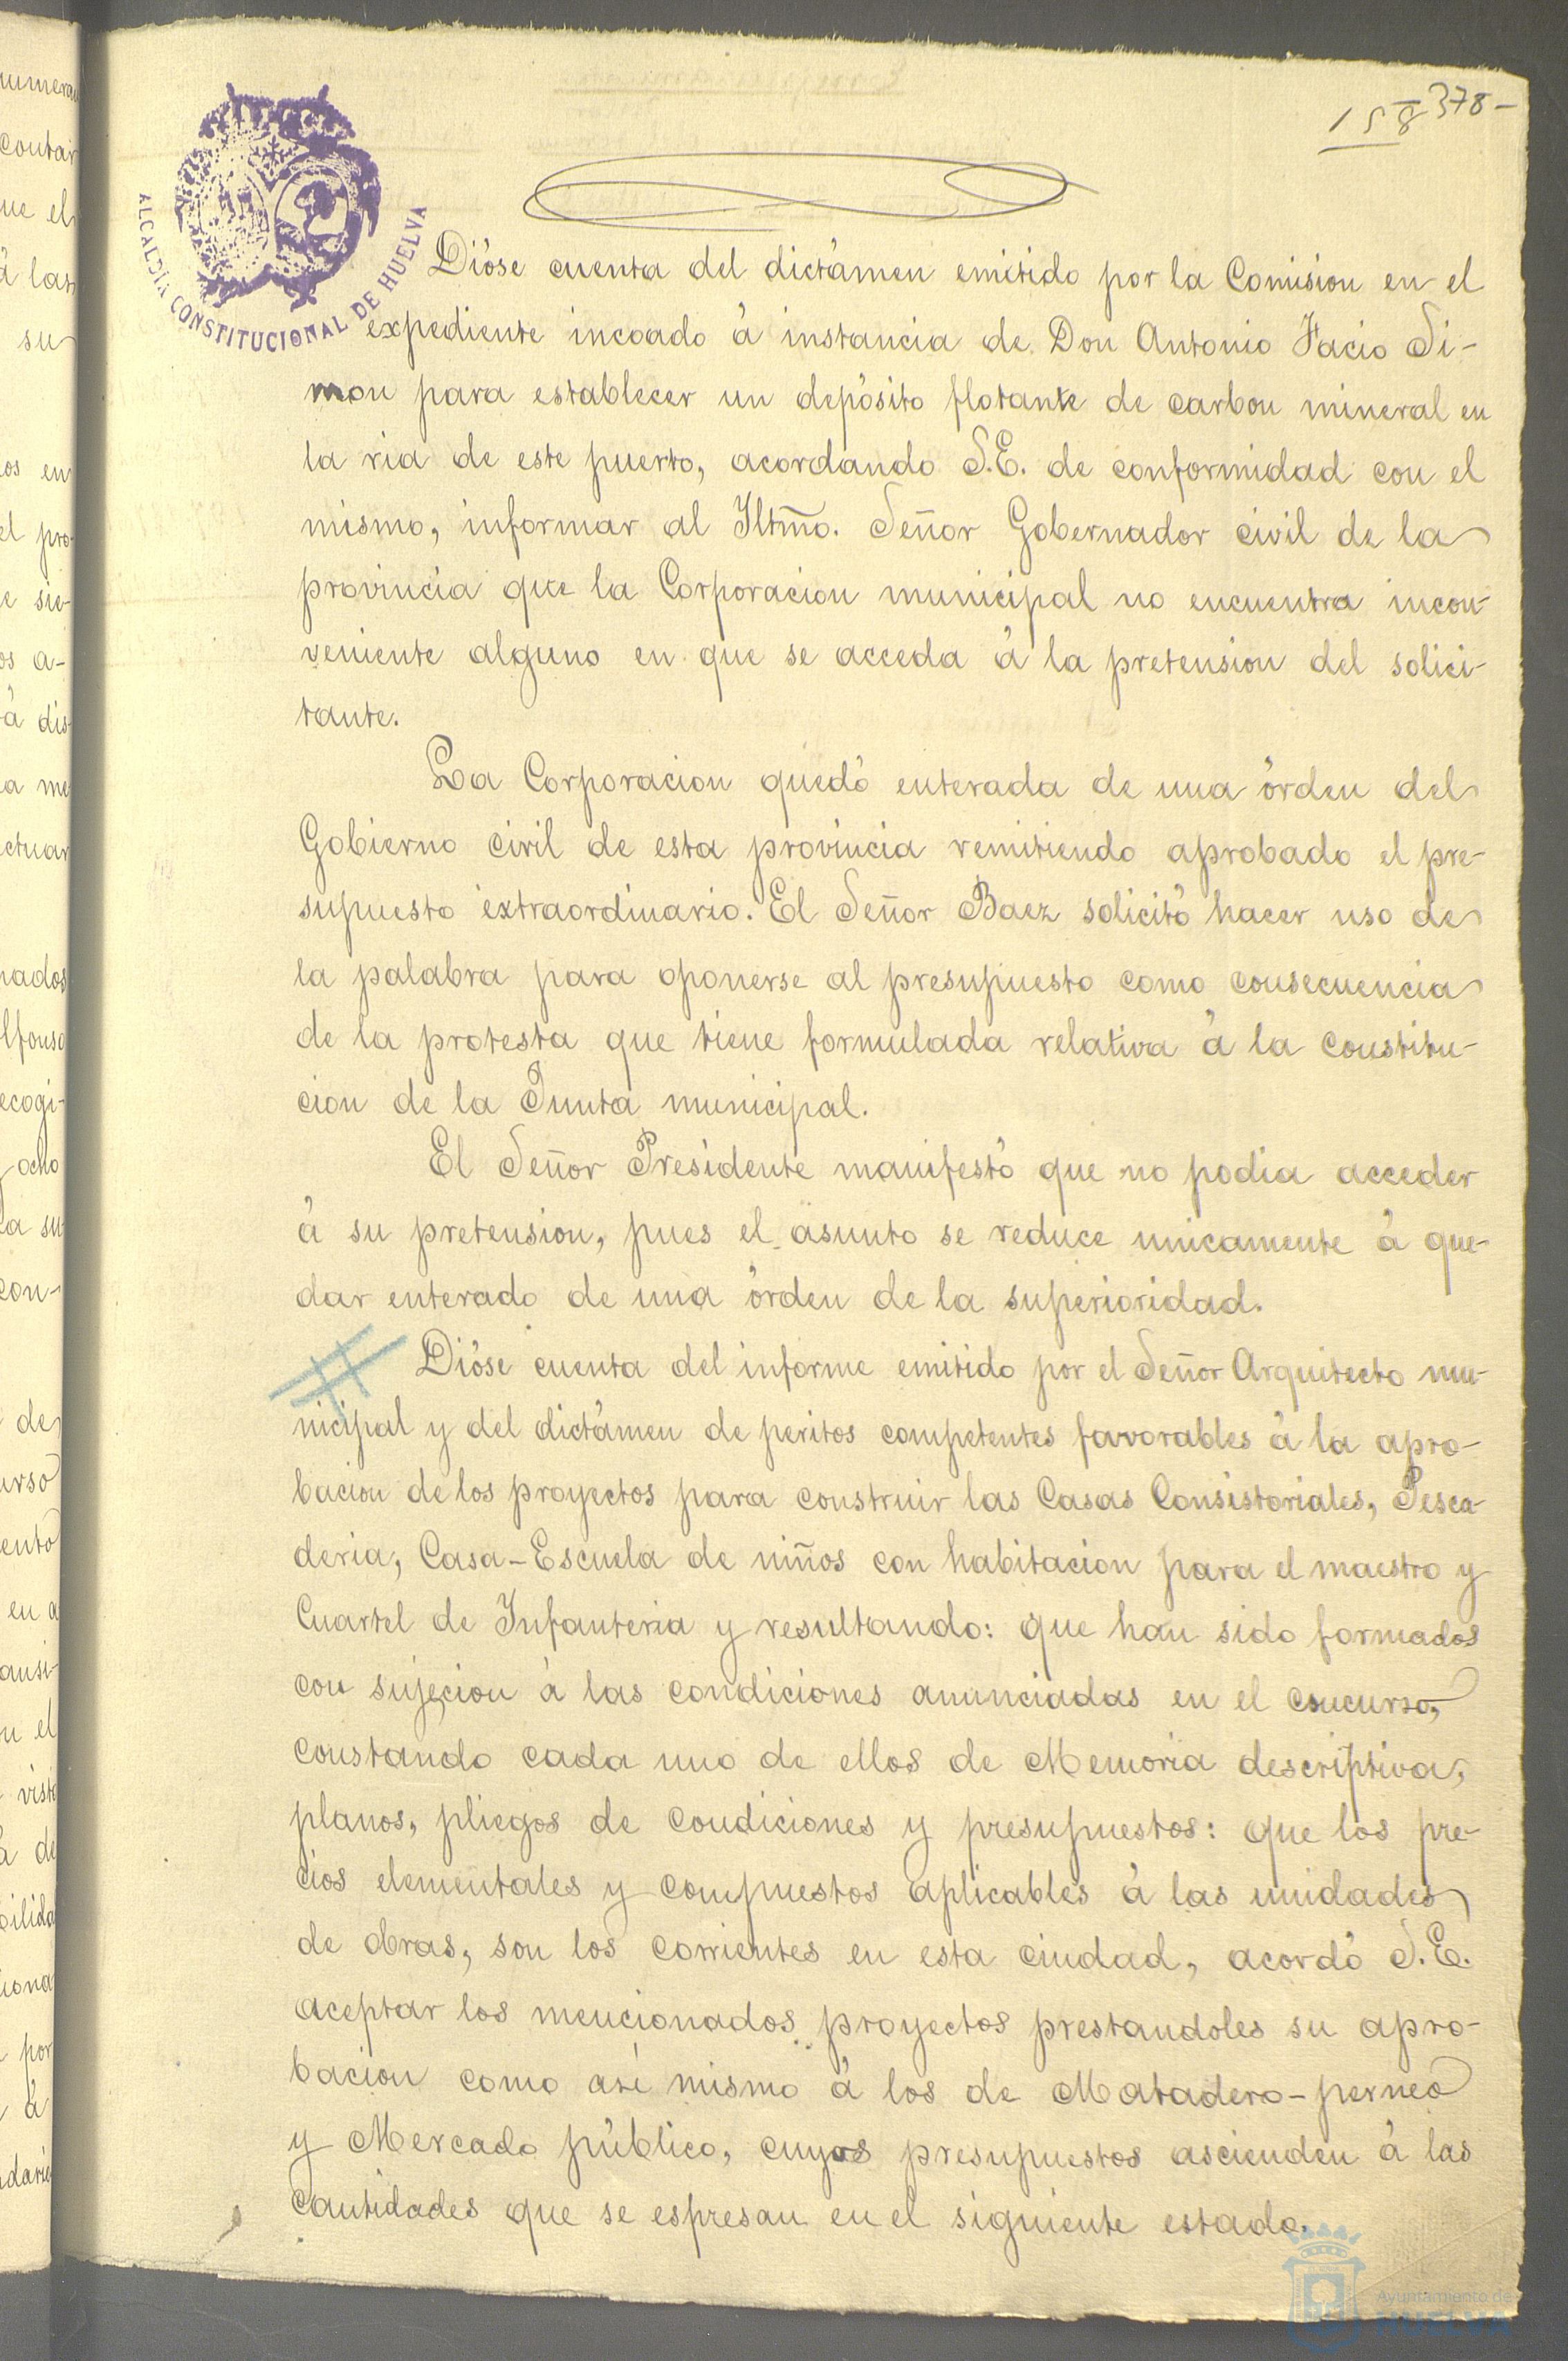 158 378-
ALCALDÍA CONSTITUCIONAL DE HUELVA
Dióse cuenta del dictámen emitido por la Comision en el
expediente incoado á instancia de Don Antonio Facio Si-
mon para establecer un depósito flotante de carbon mineral en
la ria de este puerto, acordando S.E. de conformidad con el
mismo, informar al Iltmo. Señor Gobernador civil de la
provincia que la Corporacion municipal no encuentra incon-
veniente alguno en que se acceda á la pretension del solici-
tante.
La Corporacion quedó enterada de una órden del
Gobierno civil de esta provincia remitiendo aprobado el pre-
supuesto extraordinario. El Señor Baez solicitó hacer uso de
la palabra para oponerse al presupuesto como consecuencia
de la protesta que tiene formulada relativa á la constitu-
cion de la Junta municipal.
El Señor Presidente manifestó que no podia acceder
á su pretension, pues el asunto se reduce unicamente á que-
dar enterado de una órden de la superioridad.
Dióse cuenta del informe emitido por el Señor Arquitecto mu-
nicipal y del dictámen de peritos competentes favorables á la apro-
bacion de los proyectos para construir las Casas Consistoriales, Pesca-
deria, Casa-Escuela de niños con habitacion para el maestro y
Cuartel de Infanteria y resultando: que han sido formados
con sujecion á las condiciones anunciadas en el concurso,
constando cada uno de ellos de Memoria descriptiva,
planos, pliegos de condiciones y presupuestos: que los pre-
cios elementales y compuestos aplicables á las unidades
de obras, son los corrientes en esta ciudad, acordó S.E.
aceptar los mencionados proyectos prestandoles su apro-
bacion como asi mismo á los de Matadero-perneo
y Mercado público, cuyos presupuestos ascienden á las
cantidades que se espresan en el siguiente estado.
Ayuntamiento de
HUELVA